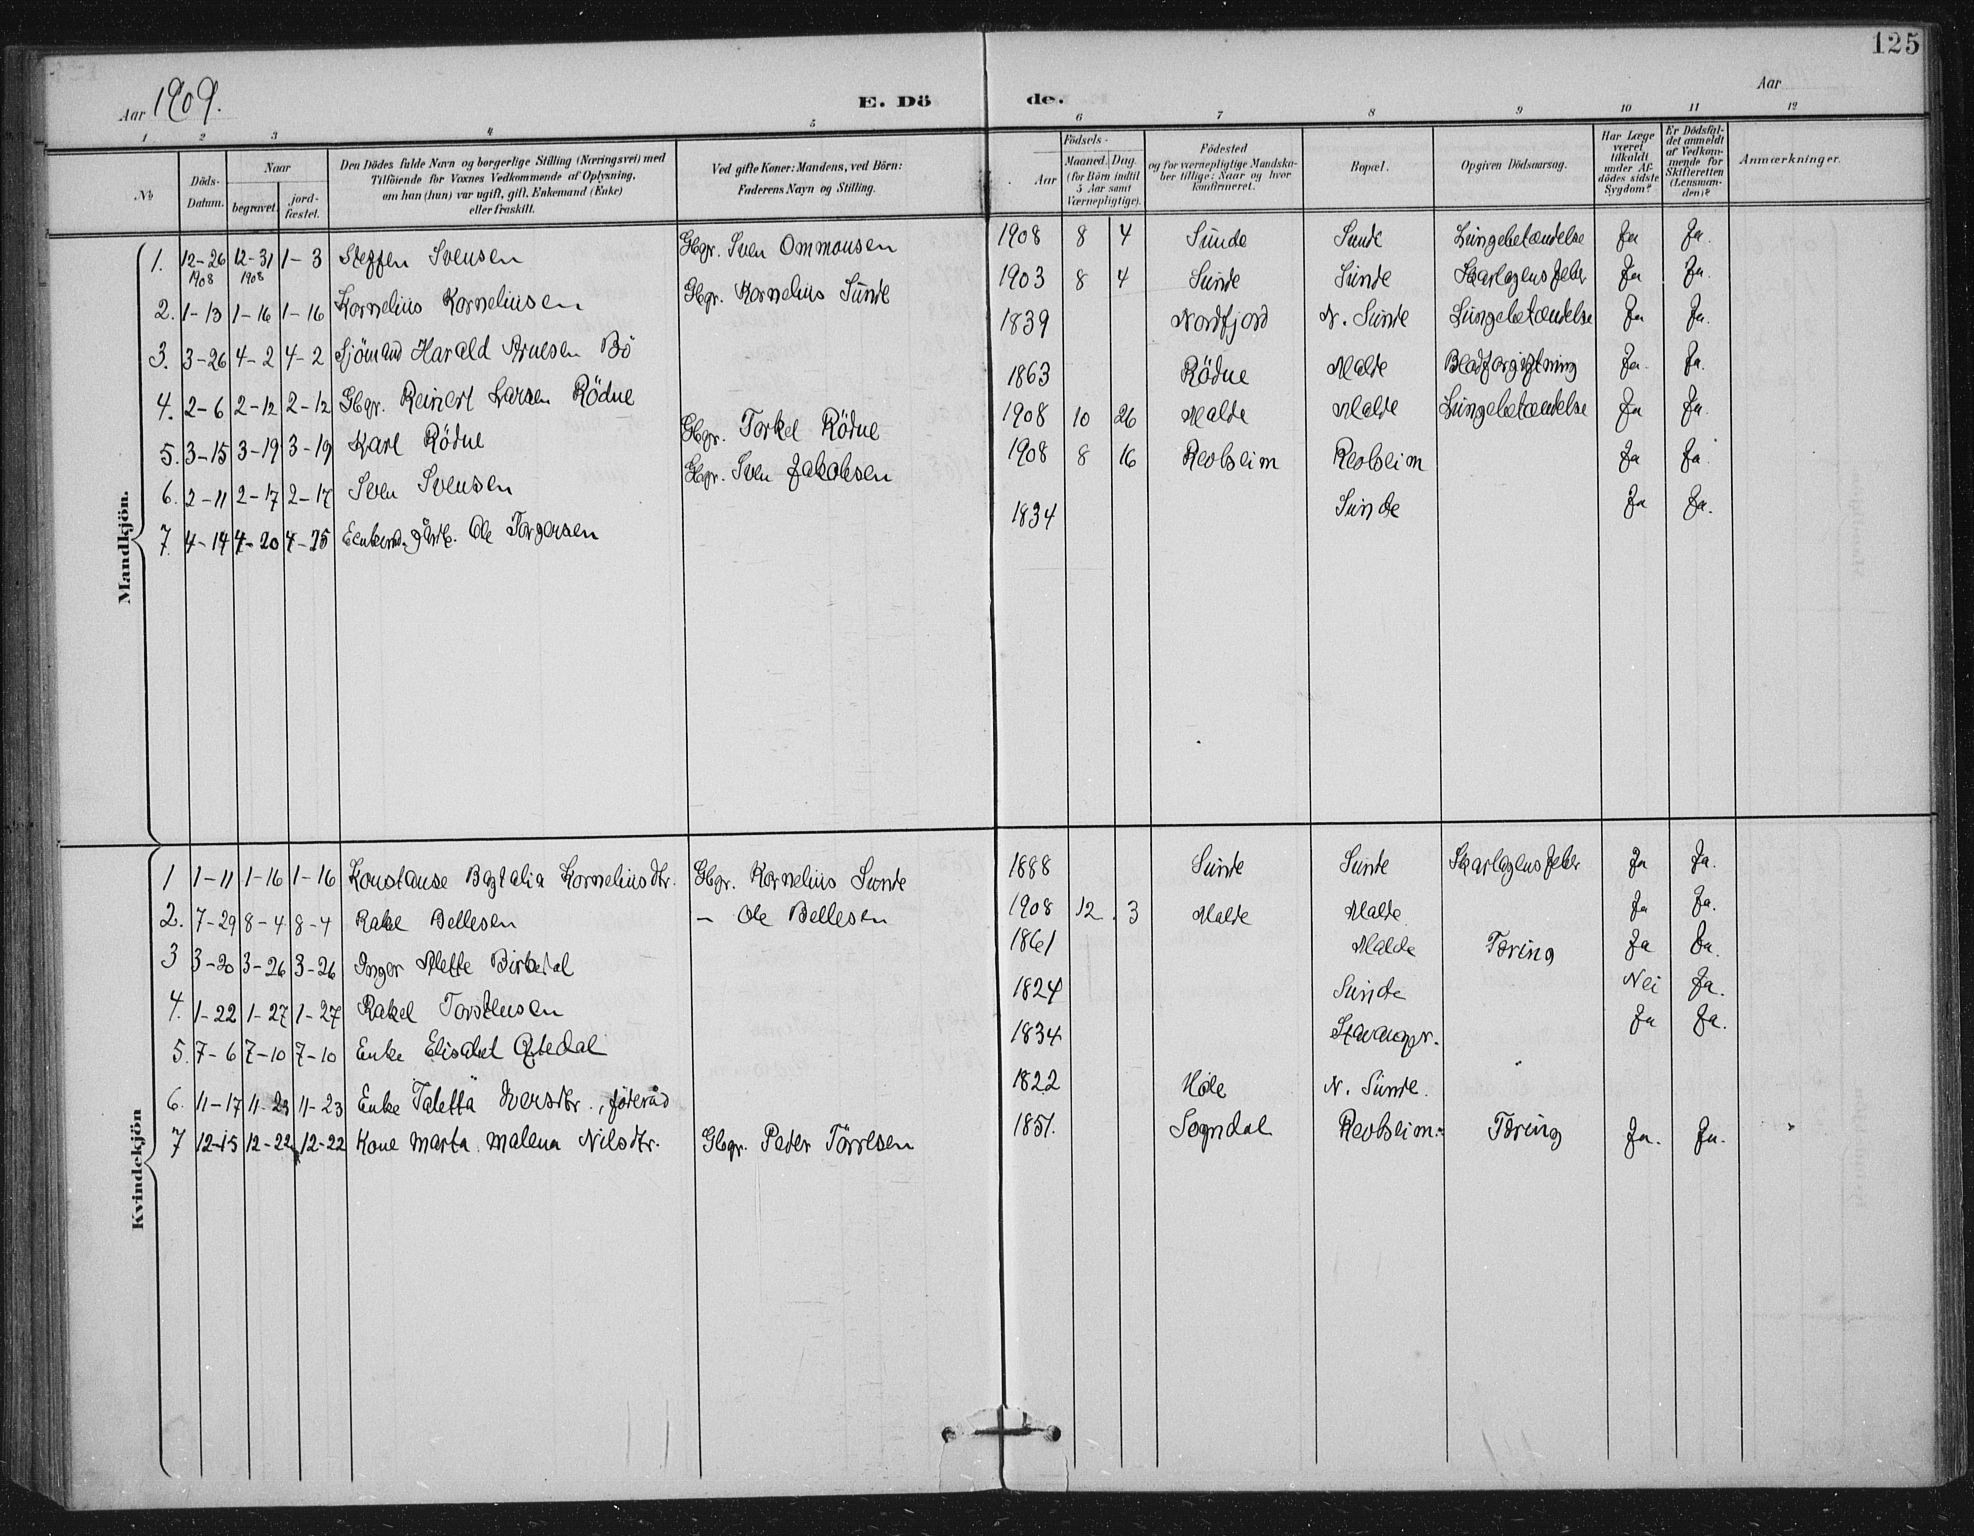 125
Aar 1909.
E. Dö de.
Aar
1 2 3 4 5 6 7 8 9 10 11 12
No
Döds-Datum.
Naar
begravet.
jord-fæstet.
Den Dödes fulde Navn og borgerlige Stilling (Næringsvei) med
Tilföiende for Voxnes Vedkommende af Oplysning,
om han (hun) var ugift, gift, Enkemand (Enke)
eller fraskilt.
Ved gifte Koner: Mandens, ved Börn:
Faderens Navn og Stilling.
Födsels-
Aar
Maaned. Dag.
(for Börn indtil
5 Aar samt
Værnepligtige).
Födested
og for værnepligtige Mandska-
ber tillige: Naar og hvor
konfirmeret.
Bopæl.
Opgiven Dödsaarsag.
Har Læge
været
tilkaldt
under Af-
dödes sidste
Sygdom?
Er Dödsfal-
det anmeldt
af Vedkom-
mende for
Skifteretten
(Lensman-
den)?
Anmærkninger.
Mandkjön.
1. 12-26 1908 12-31 1908 1-3 Steffen Svensen Gbgr. Sven Ommonsen 1908 8 4 Sunde Sunde Lungebetændelse Ja Ja.
2. 1-13 1-16 1-16 Kornelius Korneliusen Gbgr. Kornelius Sunde 1903 8 4 Sunde Sunde Skarlagensfeber Ja Ja.
3. 3-26 4-2 4-2 Sjömand Harald Arnesen Bö 1839 Nordfjord N. Sunde Lungebetændelse Ja Ja.
4. 2-6 2-12 2-12 Gbgr. Reinert Larsen Rödne 1863 Rödne Malde Blodforgiftning Ja. Ja.
5. 3-15 3-19 3-19 Karl Rödne Gbgr. Torkel Rödne 1908 10 26 Malde Malde Lungebetændelse Ja Ja.
6. 2-11 2-17 2-17 Sven Svensen Gbgr. Sven Jakobsen 1908 8 16 Revheim Revheim Ja Ja.
7. 4-14 4-20 4-25 Ole Torgersen 1834 Sunde Ja Ja.
Kvindekjön
1 1-11 1-16 1-16 Konstanse Korneliusdtr. Gbgr. Kornelius Sunde 1888 Sunde Sunde Skarlagensfeber Ja Ja.
2. 7-29 8-4 8-4 Rakel Bellesen - Ole Bellesen 1908 12 3 Malde Malde Ja Ja.
3 3-20 3-26 3-26 Inger Mette Birkedal 1861 Malde Tæring Ja Ja.
4. 1-22 1-27 1-27 Rakel Torstensen 1824 Sunde Nei Ja.
5. 7-6 7-10 7-10 Enke Elisabet 1834 Stavanger. Ja Ja.
6. 11-17 11-23 11-23 Enke Taletta Iversdtr., föderåd 1822 Höle N. Sunde.
7 12-15 12-22 12-22 Kone Marta Malena Nilsdtr. Gbgr. Peder Törresen 1851. Sogndal Revheim. Tæring Ja. Ja.